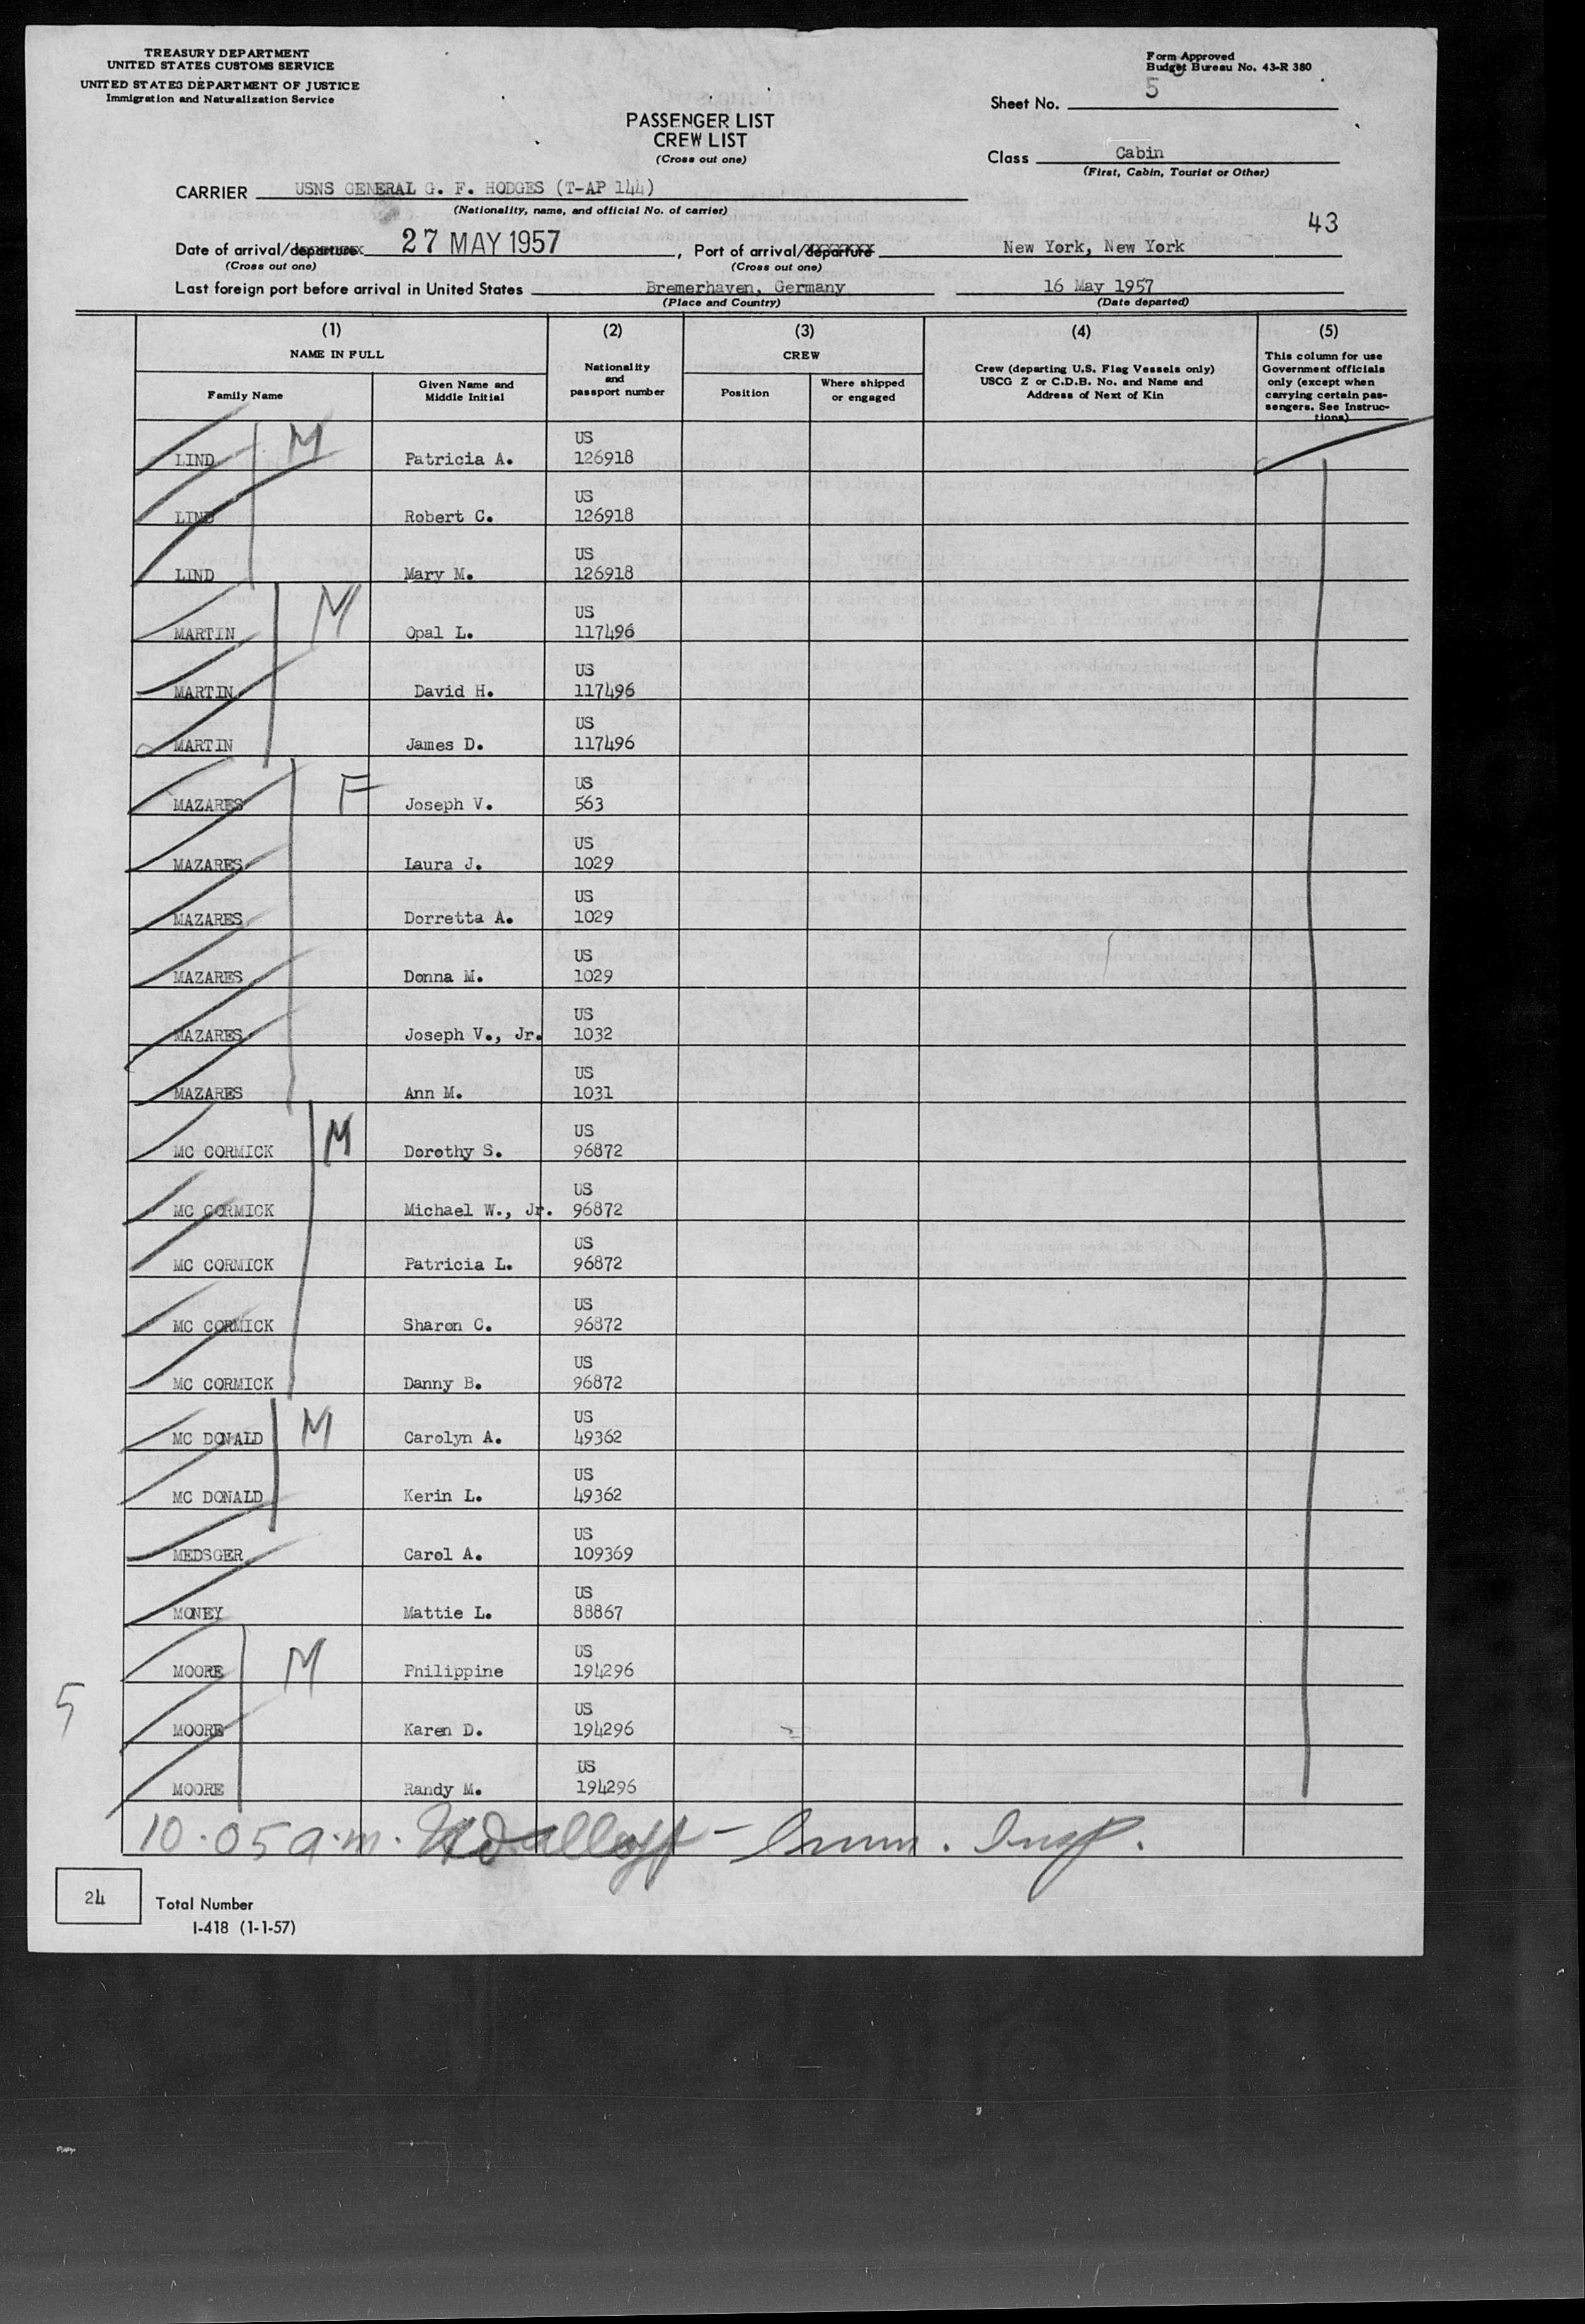 TREASURY DEPARTMENT
UNITED STATES CUSTOMS SERVICE
UNITED STATES DEPARTMENT OF JUSTICE
Immigration and Naturalization Service
Form Approved
Budget Bureau No. 43-R 380
Sheet No. 5
PASSENGER LIST
CREW LIST
(Cross out one)
Class Cabin
(First, Cabin, Tourist or Other)
CARRIER USNS GENERAL G. F. HODGES (T-AP 144)
(Nationality, name, and official No. of carrier)
43
Date of arrival/departure 27 MAY 1957, Port of arrival/departure New York, New York
(Cross out one) (Cross out one)
Last foreign port before arrival in United States Bremerhaven, Germany 16 May 1957
(Place and Country) (Date departed)
(1) (2) (3) (4) (5)
NAME IN FULL
Family Name
Given Name and
Middle Initial
Nationality
and
passport number
CREW
Position
Where shipped
or engaged
Crew (departing U.S. Flag Vessels only)
USCG Z or C.D.B. No. and Name and
Address of Next of Kin
This column for use
Government officials
only (except when
carrying certain pas-
sengers. See Instruc-
tions)
US
LIND M Patricia A. 126918
US
LIND Robert C. 126918
US
LIND Mary M. 126918
US
MARTIN M Opal L. 117496
US
MARTIN David H. 117496
US
MARTIN James D. 117496
US
MAZARES F Joseph V. 563
US
MAZARES Laura J. 1029
US
MAZARES Dorretta A. 1029
US
MAZARES Donna M. 1029
US
MAZARES Joseph V., Jr. 1032
US
MAZARES Ann M. 1031
US
MC CORMICK M Dorothy S. 96872
US
MC CORMICK Michael W., Jr. 96872
US
MC CORMICK Patricia L. 96872
US
MC CORMICK Sharon C. 96872
US
MC CORMICK Danny B. 96872
US
MC DONALD M Carolyn A. 49362
US
MC DONALD Kerin L. 49362
US
MEDSGER Carol A. 109369
US
MONEY Mattie L. 88867
US
MOORE M Philippine 194296
5
US
MOORE Karen D. 194296
US
MOORE Randy M. 194296
10.05 a.m. - Imm. Insp.
24 Total Number
I-418 (1-1-57)